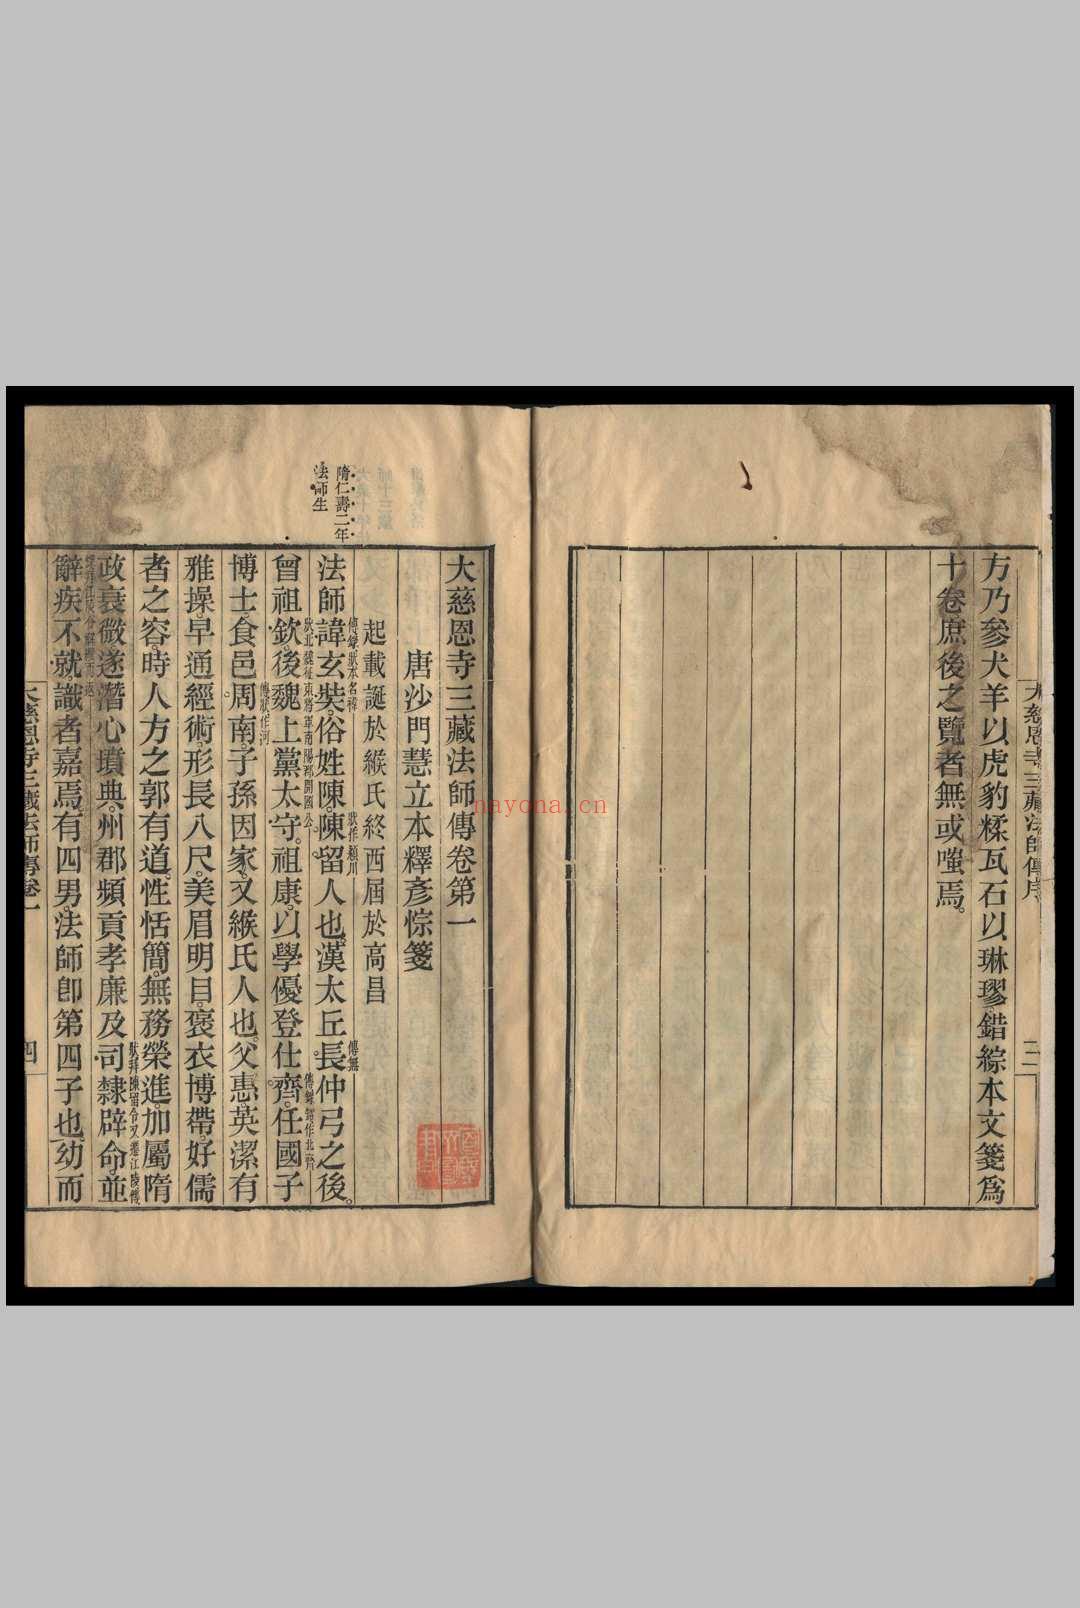 方乃參犬羊以虎豹糅瓦石以琳璆錯綜本文箋爲
十卷庶後之覽者無或嗤焉。
大慈恩寺三藏法師傳序
隋仁壽二年
法師生
大慈恩寺三藏法師傳卷第一
唐沙門慧立本釋彥悰箋
起載誕於緱氏終西屆於高昌
法師諱玄奘。俗姓陳。陳留人也。漢太丘長仲弓之後。
傳錄狀本名褘
狀作潁川
傳無
曾祖欽。後魏上黨太守。祖康。以學優登仕齊。任國子
狀北魏征東將軍南陽郡開國公
博士。食邑周南。子孫因家。又緱氏人也。父惠。英潔有
傳狀作河
雅操。早通經術。形長八尺。美眉明目。褒衣博帶。好儒
者之容。時人方之郭有道。性恬簡。無務榮進。加屬隋
政衰微。遂潛心墳典。州郡頻貢孝廉及司隸辟命。並
狀拜陳留令又遷江陵
辭疾不就。識者嘉焉。有四男。法師卽第四子也。幼而
大慈恩寺三藏法師傳卷一
四
nayona.cn